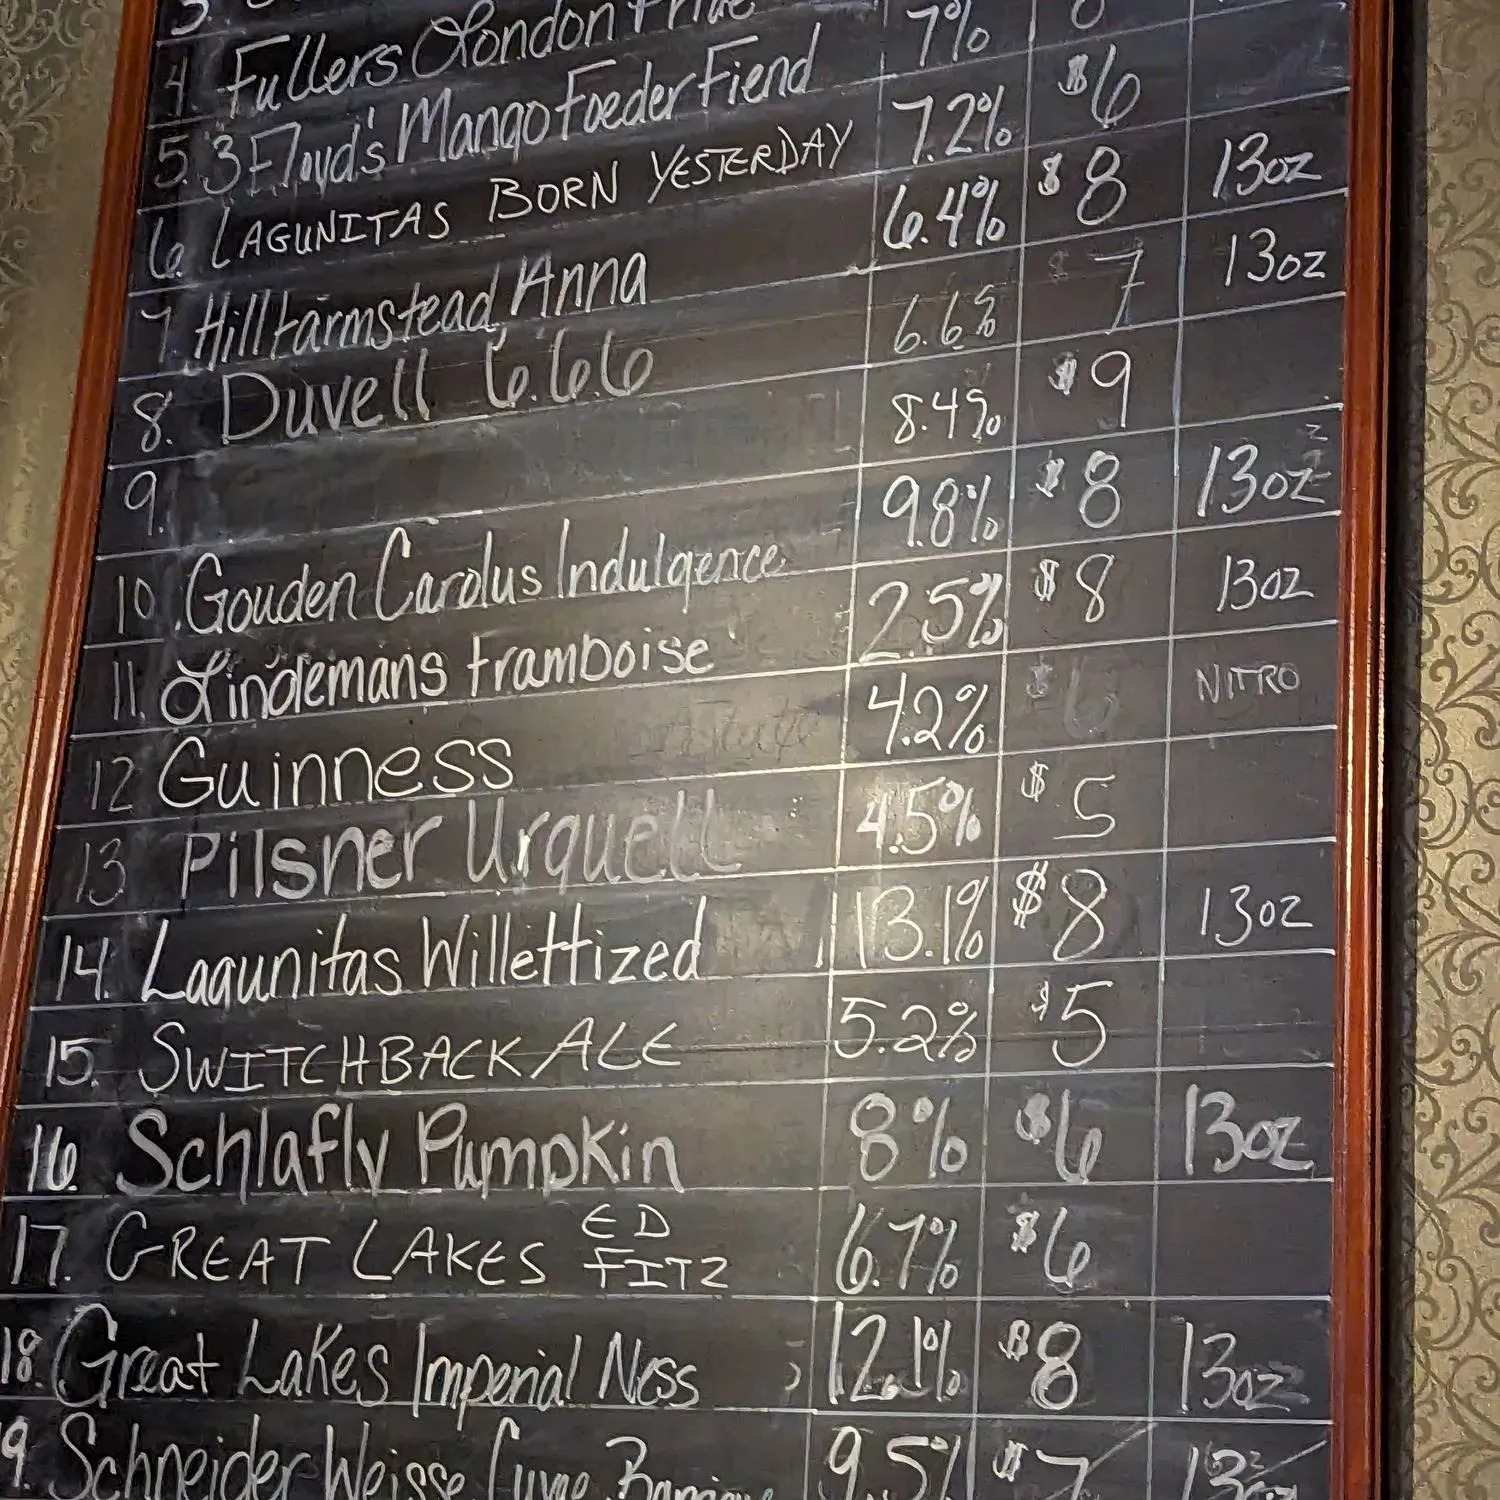 4. Fullers London Pride
5. 3 Floyd's Mango Foeder Fiend 7% 8
6. LAGUNITAS BORN YESTERDAY 7.2% $6
7. Hill Farmstead Anna 6.4% $8 13oz
8. Duvell 6.66 6.6% $7 13oz
9. 8.4% $9
10. Gouden Carolus Indulgence 9.8% $8 13oz
11. Lindemans framboise 2.5% $8 13oz
12 Guinness 4.2% $6 NITRO
13 Pilsner Urquell 4.5% $5
14. Lagunitas Willettized 13.1% $8 13oz
15. SWITCHBACK ALE 5.2% $5
16 Schlafly Pumpkin 8% $6 13oz
17. GREAT LAKES ED FITZ 6.7% $6
18. Great Lakes Imperial Ness 12.1% $8 13oz
19. Schneider Weisse Cuvee 9.5% $7 13oz